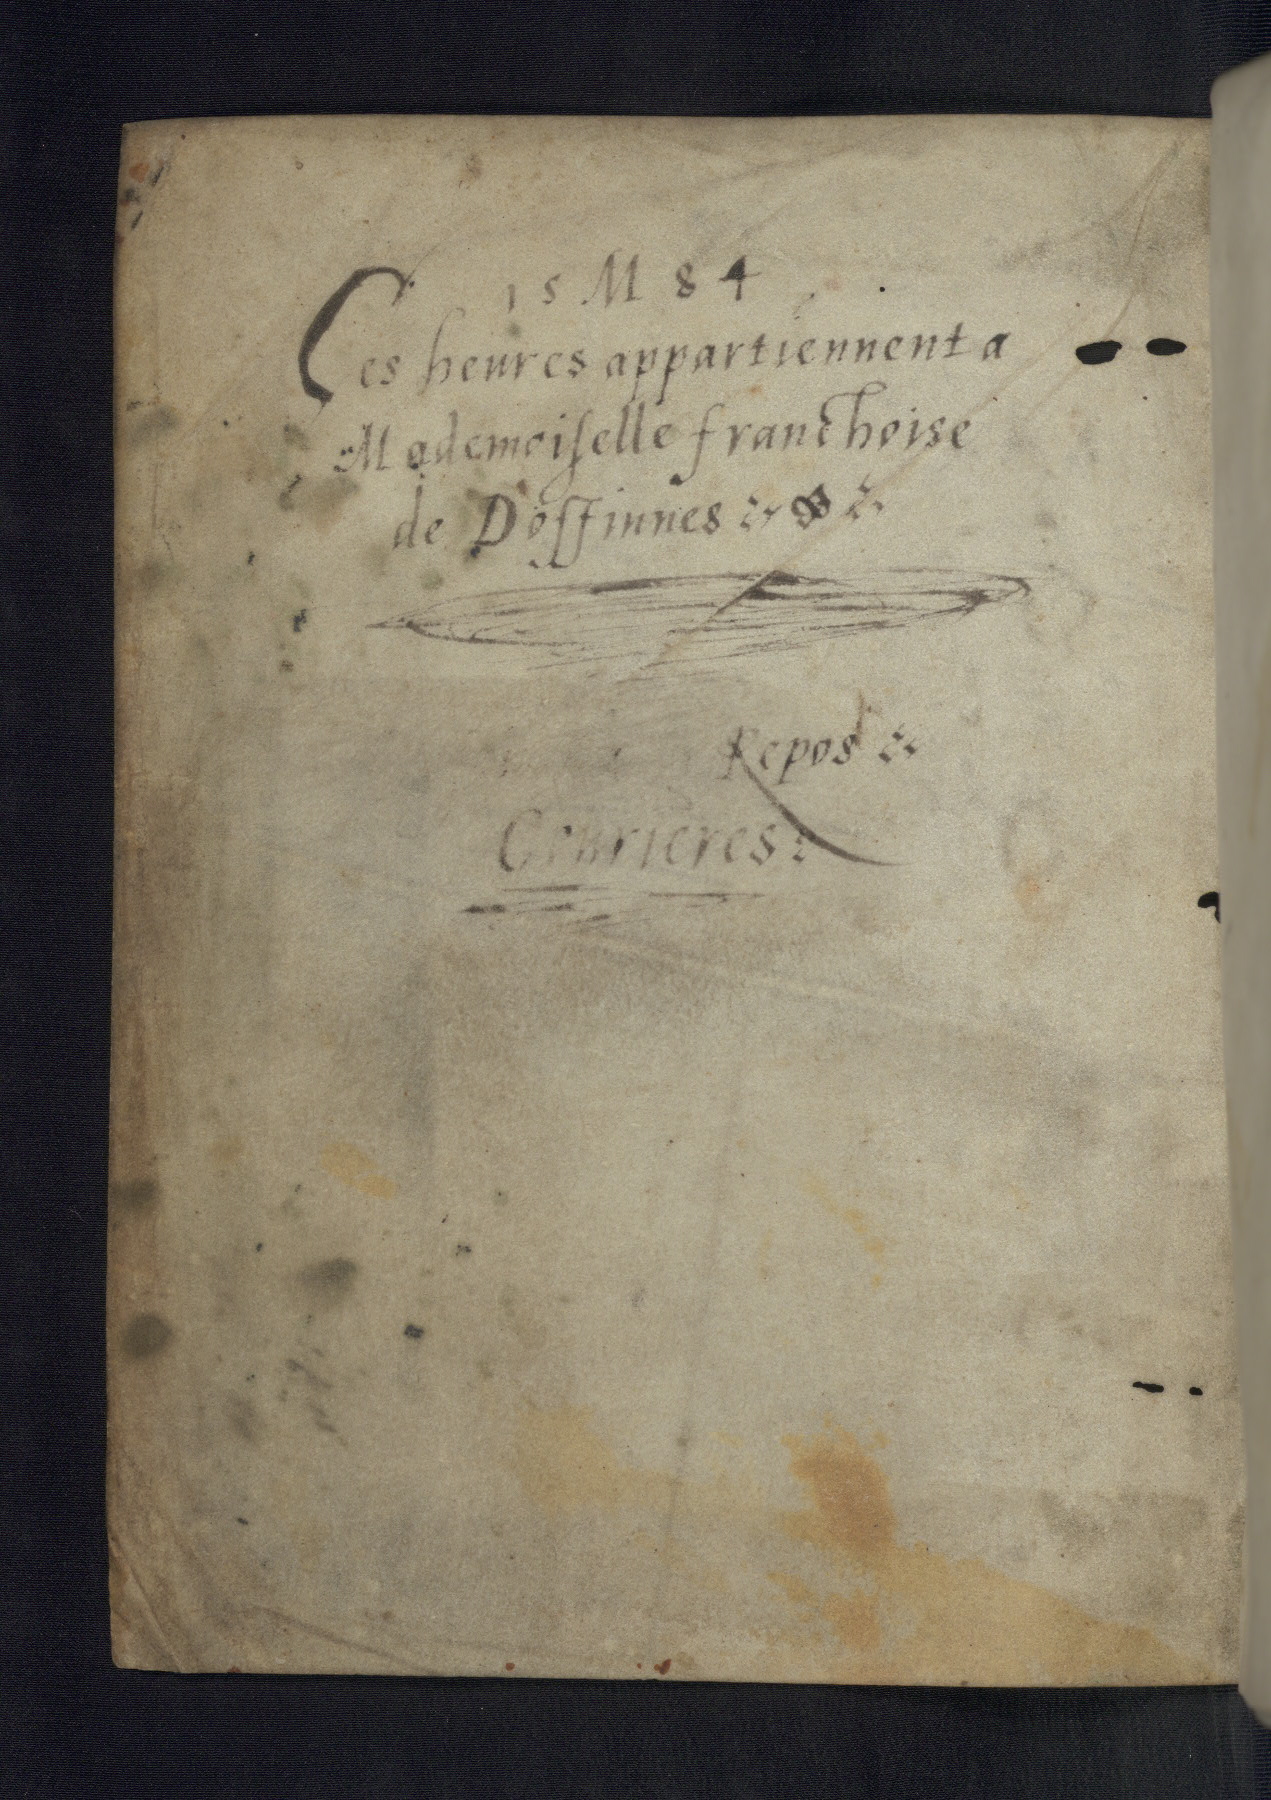 15 M 84
Ces heures appartiennent a
Mademoiselle franchoise
de Dossinnes
Repos
Courieres